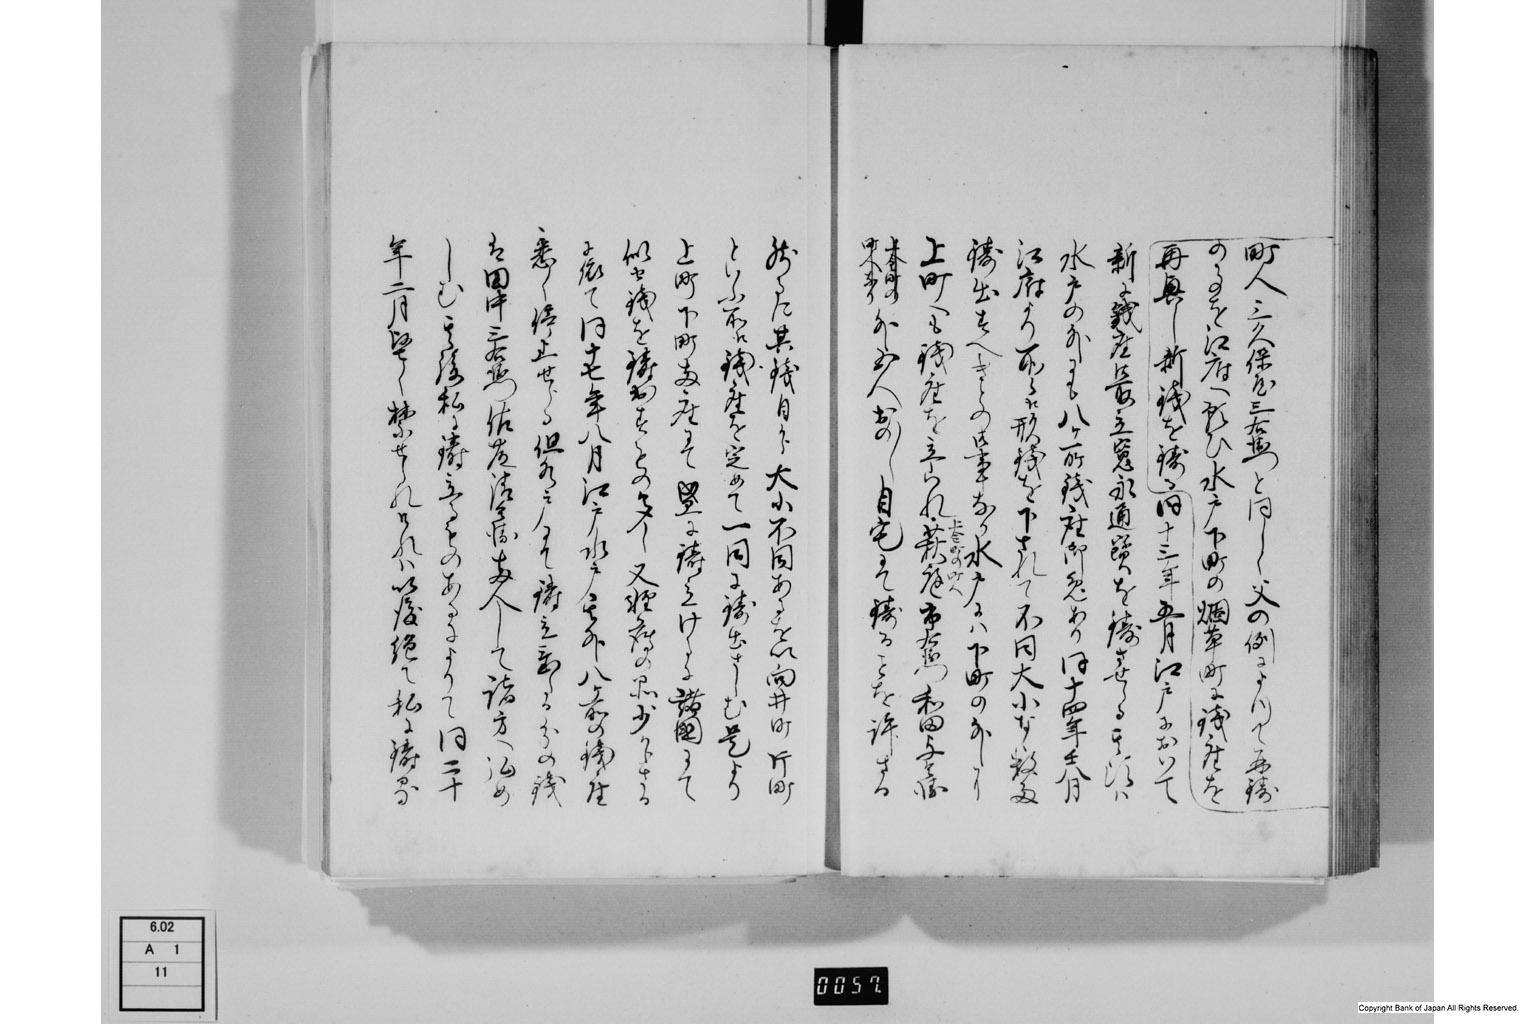 町人三久保屋三右衛門と同しく父の例によりて再鋳
のことを江府へ願ひ水戸下町の烟草町に銭座を
再興し新銭を鋳る同十三年五月江戸において
新に銭座を立寛永通寳を鋳させらる其頃は
水戸の外にも八ヶ所銭座御免あり同十四年壬八月
江府より形銭を下されて不同大小なく
鋳出すへきとの事なり水戸にハ下町の外に
上町へも銭座を立られ萩庭市右衛門和田与兵衛
上金町の町人
上金町の
町人なり
外五人わかし自宅にて鋳ることを許さる
然るに其銭目に大小不同あるを以向井町片町
といふ所に銭座を定めて一同に鋳出さしむ是より
上町下町両座にて盛に鋳立けるに諸国にて
似せ銭を鋳出すもの多く又軽薄の悪少からさる
に依て同十七年八月江戸水戸其外八ヶ所の銭座
悉く停止せらる但水戸にて鋳立る分の銭
を田中三右衛門佐藤清兵衛両人して諸方へ
しむ其後私に鋳立るものあるによりて同二十
年二月堅く禁せられけれハ以後絶て私に鋳
6.02
A 1
11
0057
Copyright Bank of Japan All Rights Reserved.